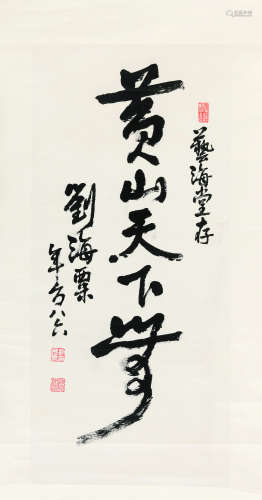 藝海堂存
黄山天下
劉海粟
年方八六